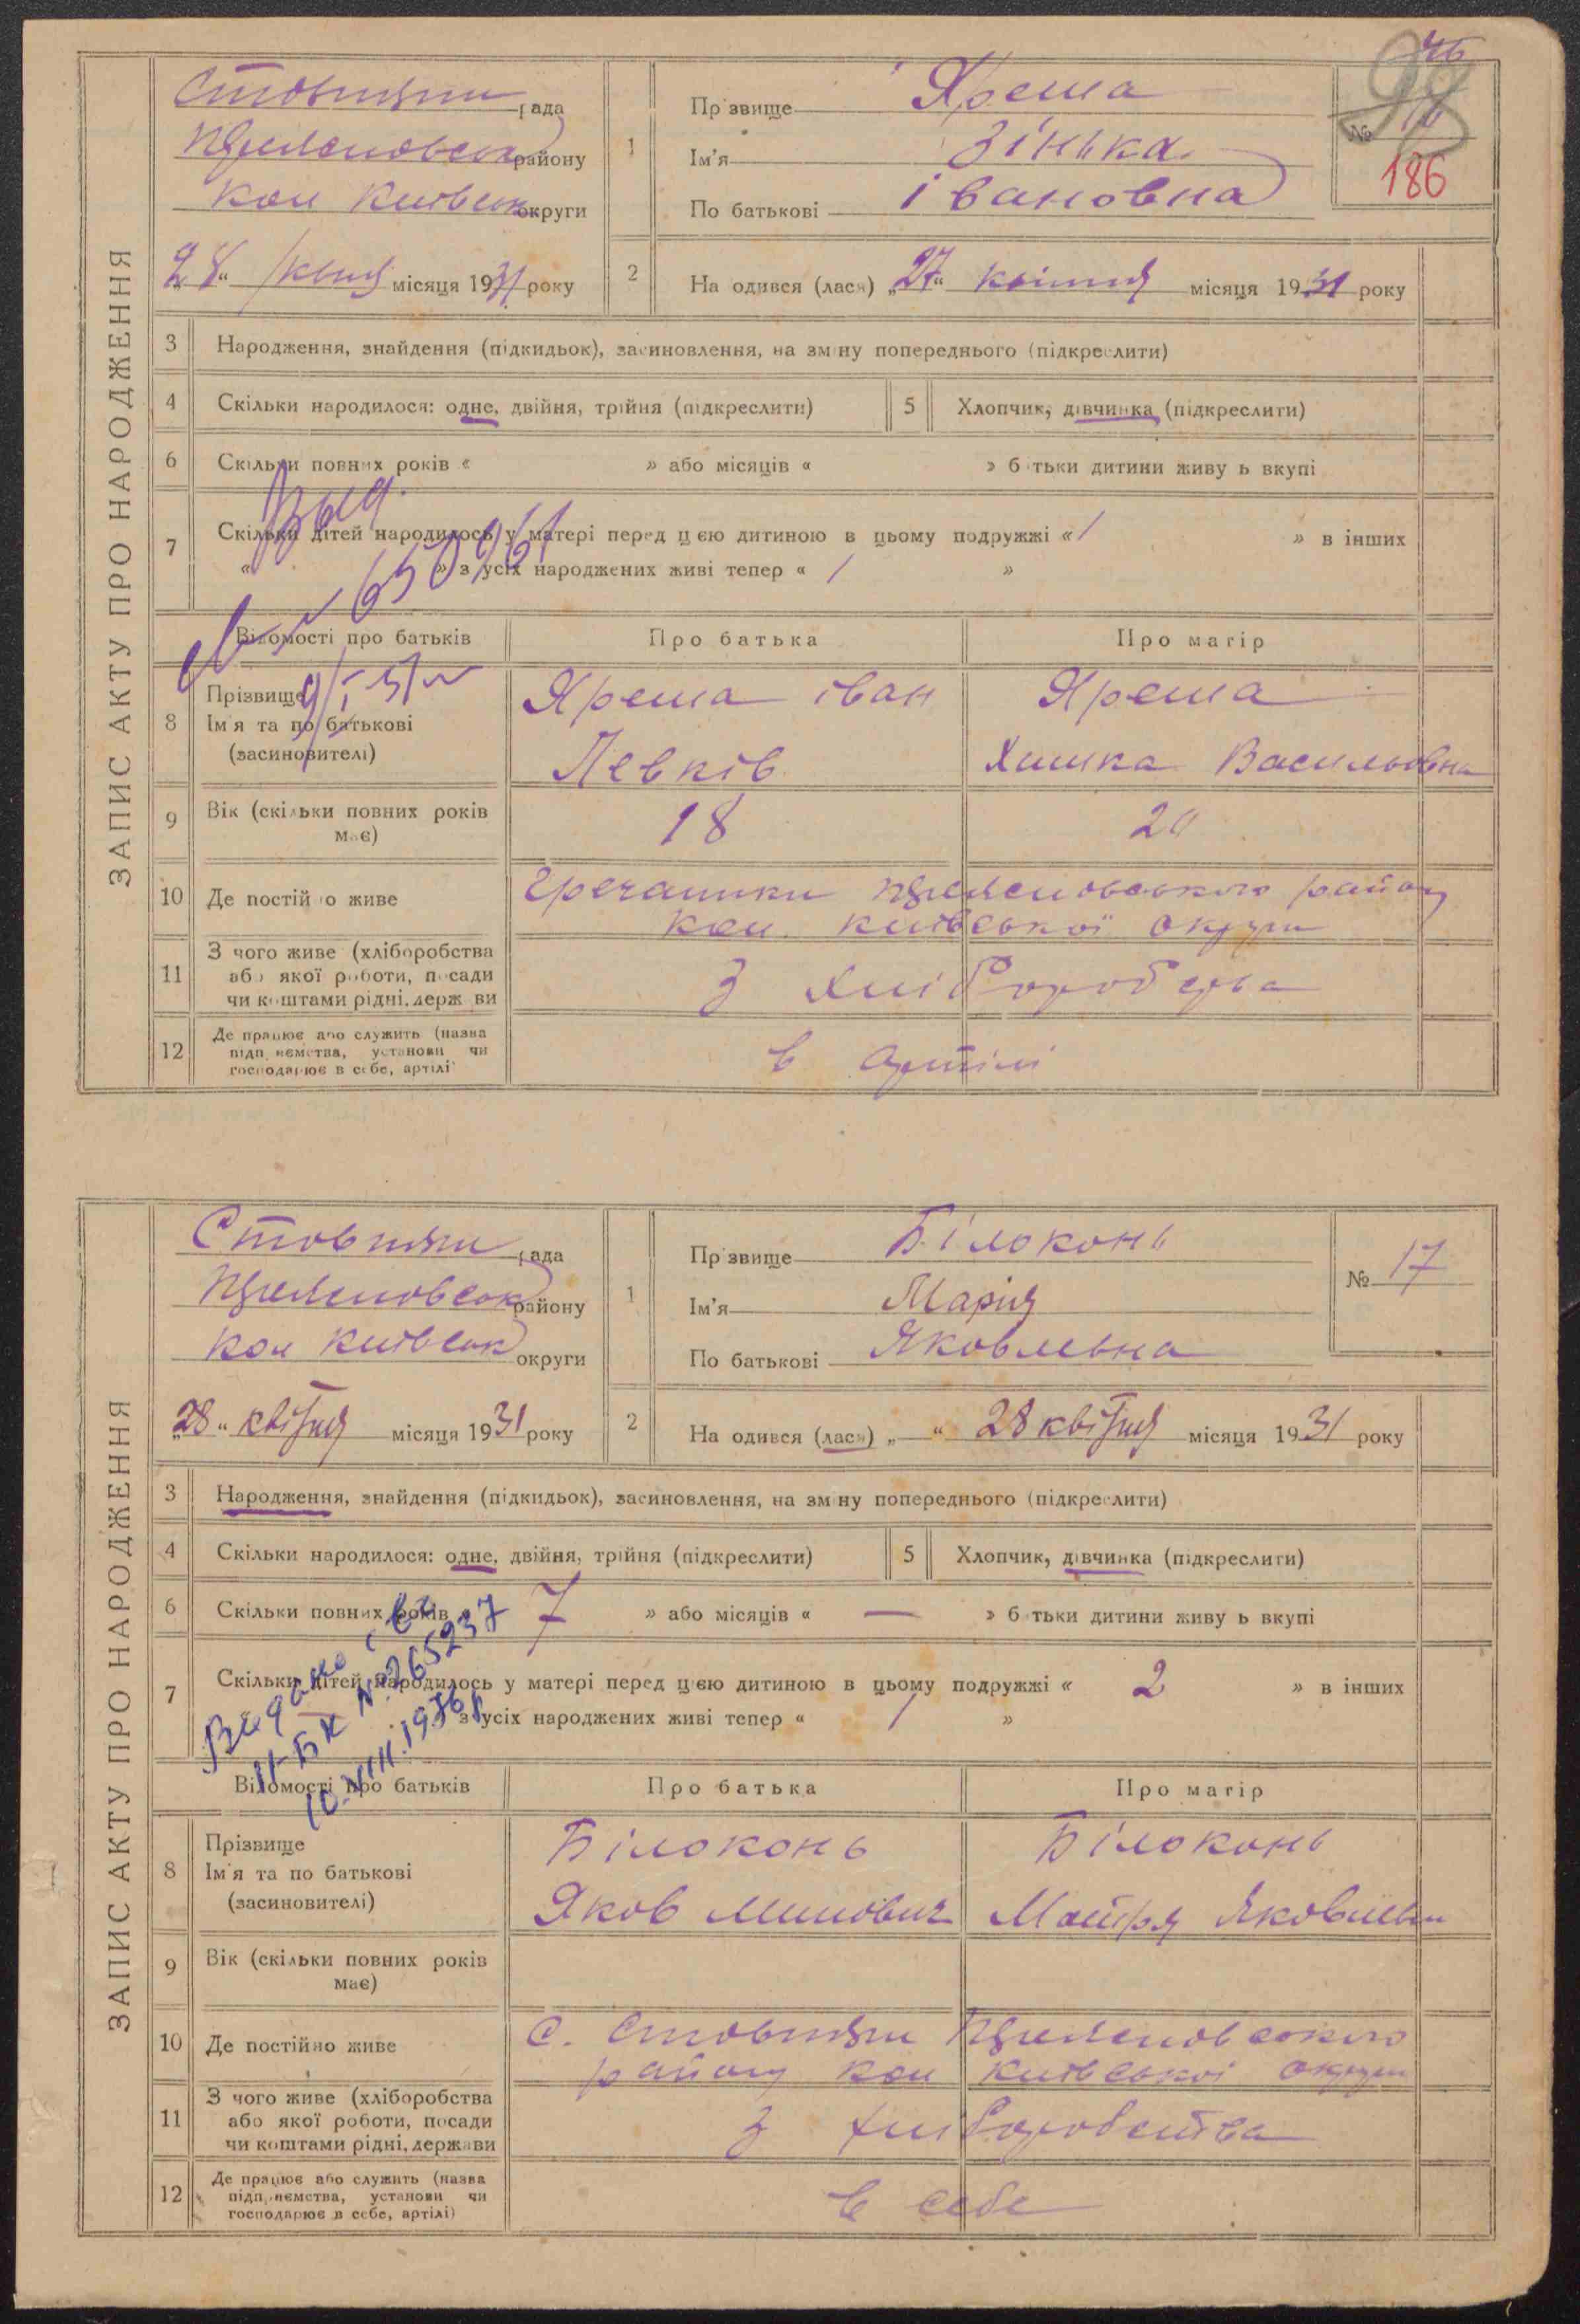 ЗАПИС АКТУ ПРО НАРОДЖЕННЯ
рада
району
Кол Київськ округи
28 місяця 1931 року
1
Прізвище Яреша
Ім'я Зінька
По батькові Івановна
46
98
№ 16
186
2 На одився (лася) „27“ квітня місяця 1931 року
3 Народження, знайдення (підкидьок), засиновлення, на зміну попереднього (підкреслити)
4 Скільки народилося: одне, двійня, трійня (підкреслити)
5 Хлопчик, дівчинка (підкреслити)
6 Скільки повних років « » або місяців « » батьки дитини живуть вкупі
7 Скільки дітей народилось у матері перед цією дитиною в цьому подружжі « 1 » в інших
« » з усіх народжених живі тепер « 1 »
Выд.
Відомості про батьків Про батька Про матір
8 Прізвище
Ім'я та по батькові
(засиновителі)
Яреша Іван
Левків
Яреша
Васильовна
9 Вік (скільки повних років має)
18
20
10 Де постійно живе
району
Кол. Київської округи
11 З чого живе (хліборобства
або якої роботи, посади
чи коштами рідні, держави
З хліборобства
12 Де працює або служить (назва
підприємства, установи чи
господарює в себе, артілі)
в артілі
ЗАПИС АКТУ ПРО НАРОДЖЕННЯ
рада
району
Кол Київськ округи
„28“ квітня місяця 1931 року
1
Прізвище Білоконь
Ім'я Марія
По батькові Яковлевна
№ 17
2 На одився (лася) „ “ 28 квітня місяця 1931 року
3 Народження, знайдення (підкидьок), засиновлення, на зміну попереднього (підкреслити)
4 Скільки народилося: одне, двійня, трійня (підкреслити)
5 Хлопчик, дівчинка (підкреслити)
6 Скільки повних років « 7 » або місяців « — » батьки дитини живуть вкупі
7 Скільки дітей народилось у матері перед цією дитиною в цьому подружжі « 2 » в інших
з усіх народжених живі тепер « 1 »
Видано св.
II-БК № 265237
10.VIII.1976 р
Відомості про батьків Про батька Про матір
8 Прізвище
Ім'я та по батькові
(засиновителі)
Білоконь
Яков Минович
Білоконь
Яковлевн
9 Вік (скільки повних років має)
10 Де постійно живе
району кол Київської округи
11 З чого живе (хліборобства
або якої роботи, посади
чи коштами рідні, держави
З хліборобства
12 Де працює або служить (назва
підприємства, установи чи
господарює в себе, артілі)
в себе